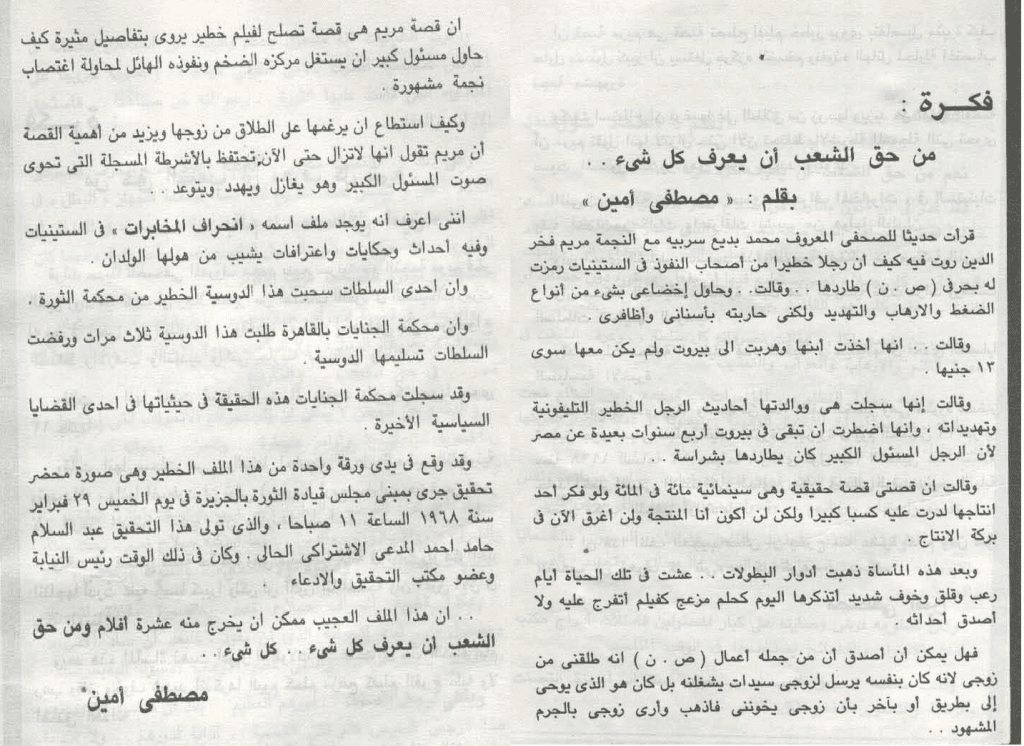 فكـــرة :
من حق الشعب أن يعرف كل شىء . .
بقلم : « مصطفى أمين »
قرأت حديثا للصحفى المعروف محمد بديع سربيه مع النجمة مريم فخر
الدين روت فيه كيف أن رجلا خطيرا من أصحاب النفوذ فى الستينيات رمزت
له بحرفى ( ص . ن ) طاردها . . وقالت . . وحاول إخضاعى بشىء من أنواع
الضغط والارهاب والتهديد ولكنى حاربته بأسنانى وأظافرى .
وقالت . . انها أخذت أبنها وهربت الى بيروت ولم يكن معها سوى
١٣ جنيها .
وقالت إنها سجلت هى ووالدتها أحاديث الرجل الخطير التليفونية
وتهديداته ، وانها اضطرت ان تبقى فى بيروت أربع سنوات بعيدة عن مصر
لأن الرجل المسئول الكبير كان يطاردها بشراسة . .
وقالت ان قصتى قصة حقيقية وهى سينمائية مائة فى المائة ولو فكر أحد
انتاجها لدرت عليه كسبا كبيرا ولكن لن أكون أنا المنتجة ولن أغرق الآن فى
بركة الانتاج .
وبعد هذه المأساة ذهبت أدوار البطولات . . عشت فى تلك الحياة أيام
رعب وقلق وخوف شديد أتذكرها اليوم كحلم مزعج كفيلم أتفرج عليه ولا
أصدق أحداثه .
فهل يمكن أن أصدق أن من جمله أعمال ( ص . ن ) انه طلقنى من
زوجى لانه كان بنفسه يرسل لزوجى سيدات يشغلنه بل كان هو الذى يوحى
إلى بطريق أو بآخر بأن زوجى يخوننى فاذهب وأرى زوجى بالجرم
المشهود . .
ان قصة مريم هى قصة تصلح لفيلم خطير يروى بتفاصيل مثيرة كيف
حاول مسئول كبير ان يستغل مركزه الضخم ونفوذه الهائل لمحاولة اغتصاب
نجمة مشهورة .
وكيف استطاع ان يرغمها على الطلاق من زوجها ويزيد من أهمية القصة
أن مريم تقول انها لاتزال حتى الآن تحتفظ بالأشرطة المسجلة التى تحوى
صوت المسئول الكبير وهو يغازل ويهدد ويتوعد . .
اننى اعرف انه يوجد ملف اسمه « انحراف المخابرات » فى الستينيات
وفيه أحداث وحكايات واعترافات يشيب من هولها الولدان .
وأن احدى السلطات سحبت هذا الدوسية الخطير من محكمة الثورة .
وأن محكمة الجنايات بالقاهرة طلبت هذا الدوسية ثلاث مرات ورفضت
السلطات تسليمها الدوسية .
وقد سجلت محكمة الجنايات هذه الحقيقة فى حيثياتها فى احدى القضايا
السياسية الأخيرة .
وقد وقع فى يدى ورقة واحدة من هذا الملف الخطير وهى صورة محضر
تحقيق جرى بمبنى مجلس قيادة الثورة بالجزيرة فى يوم الخميس ٢٩ فبراير
سنة ١٩٦٨ الساعة ١١ صباحا ، والذى تولى هذا التحقيق عبد السلام
حامد احمد المدعى الاشتراكى الحالى . وكان فى ذلك الوقت رئيس النيابة
وعضو مكتب التحقيق والادعاء .
. . أن هذا الملف العجيب ممكن أن يخرج منه عشرة أفلام ومن حق
الشعب أن يعرف كل شىء . . كل شىء . .
مصطفى أمين